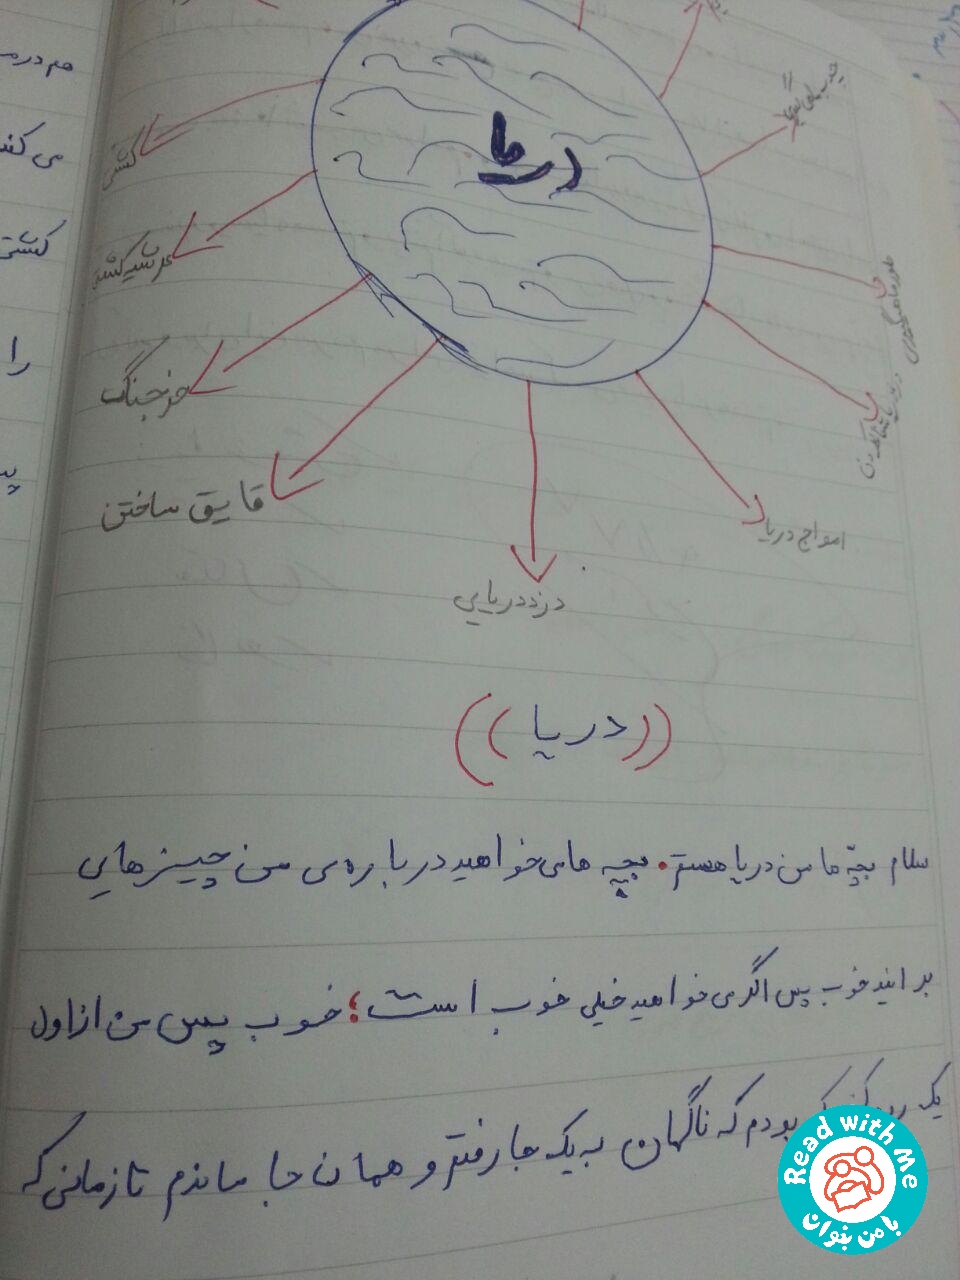 دریا
کشتی
عرشه کشتی
خرچنگ
قایق ساختن
دزددریایی
امواج دریا
در دریا شنا کردن
((دریا))
سلام بچّه ها من دریا هستم. بچه ها می خواهید درباره ی من چیزهایی
بدانید خوب پس اگر می خواهید خیلی خوب است؛ خوب پس من از اول
یک بودم که ناگهان به یک جا رفتم و همان جا ماندم تا زمانی که
هم در
می کند
کشتی
را
Read with Me
با من بخوان